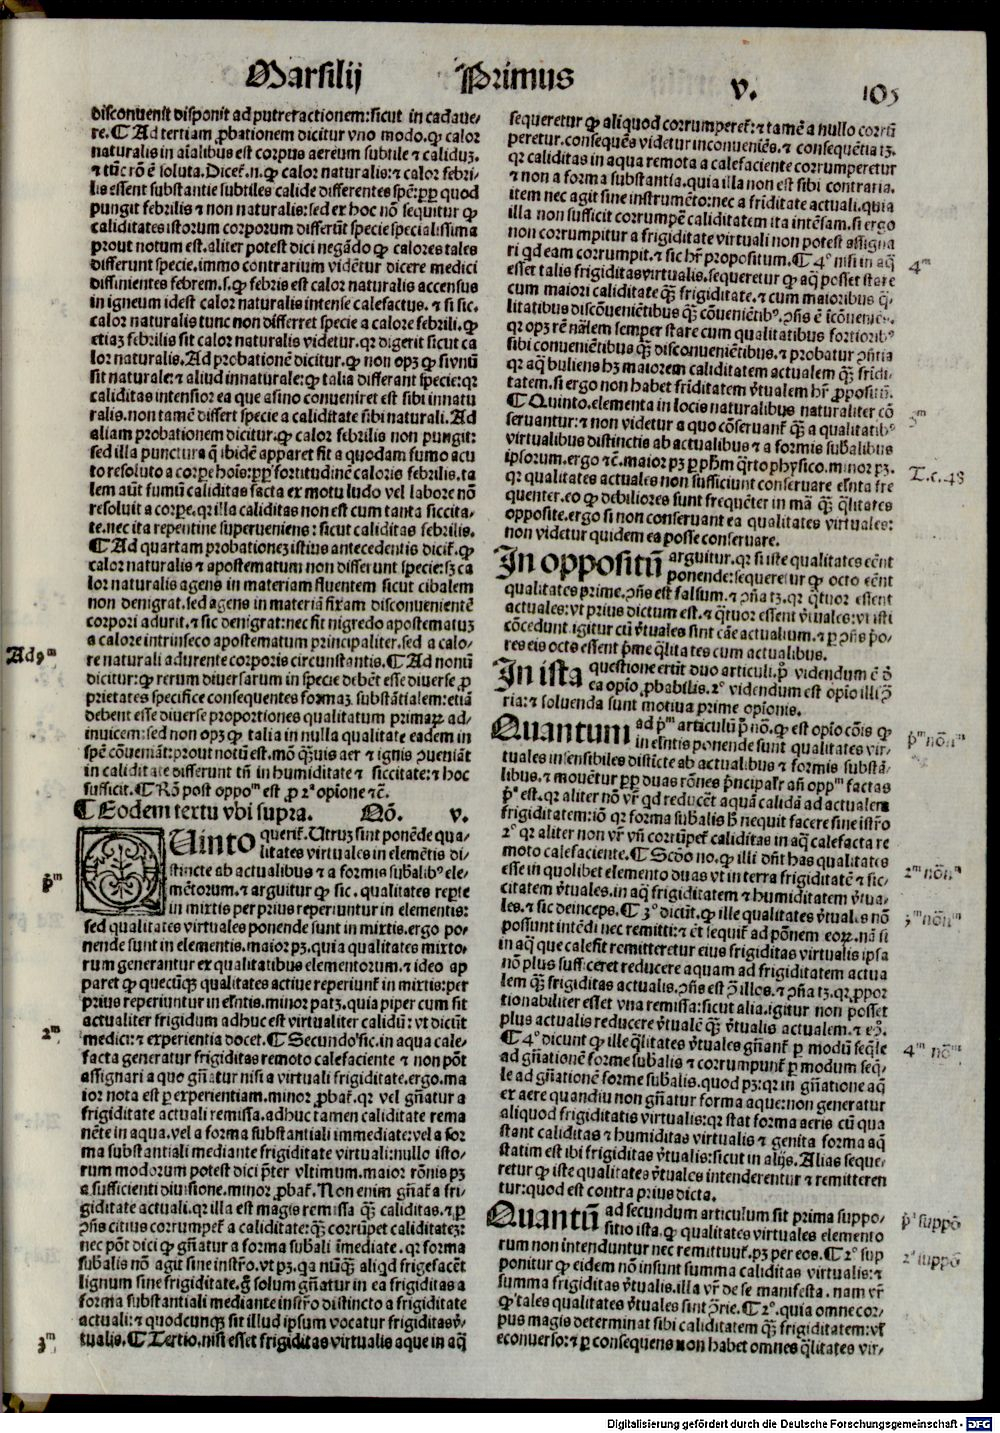 Marsilij Primus v. 105
disconuenit disponit ad putrefactionem: sicut in cadaue/
re. ¶ Ad tertiam ꝓbationem dicitur vno modo. ꝙ calor
naturalis in aīalibus est corpus aereum subtile ⁊ caliduꝫ.
⁊ tūc rō ē soluta. Diceret̄ .n. ꝙ calor naturalis: ⁊ calor febri/
lis essent substantie subtiles calide differentes spē: ꝓpꝑ quod
pungit febrilis ⁊ non naturalis: sed ex hoc nō sequitur ꝙ
caliditates istorum corporum differūt specie specialissima
prout notum est. aliter potest dici negādo ꝙ calores tales
differunt specie. immo contrarium vidētur dicere medici
diffinientes febrem .s. ꝙ febris est calor naturalis accensus
in igneum idest calor naturalis intense calefactus. ⁊ si sic.
calor naturalis tunc non differret specie a calore febrili. ꝙ
etiaꝫ febrilis sit calor naturalis videtur. qꝛ digerit sicut ca
lor naturalis. Ad probationē dicitur. ꝙ non opꝫ ꝙ si vnū
sit naturale: ⁊ aliud innaturale: ꝙ talia differant specie: qꝛ
caliditas intensior ea que asino conueniret est sibi innatu
ralis. non tamē differt specie a caliditate sibi naturali. Ad
aliam probationem dicitur. ꝙ calor febrilis non pungit:
sed illa punctura q̄ ibidē apparet fit a quodam fumo acu
to resoluto a corpe hoīs: ꝓpꝑ fortitudinē caloris febrilis. ta
lem aūt fumū caliditas facta ex motu ludo vel labore nō
resoluit a corpe. qꝛ illa caliditas non est cum tanta siccita/
te. nec ita repentine superueniens: sicut caliditas febrilis.
¶ Ad quartam probationeꝫ istius antecedentis dicit̄. ꝙ
calor naturalis ⁊ apostematum non differunt specie: sꝫ ca
lor naturalis agens in materiam fluentem sicut cibalem
non denigrat. sed agens in materiā fixam disconuenientē
corpori adurit. ⁊ sic denigrat: nec fit nigredo apostematuꝫ
a calore intrinseco apostematum principaliter. sed a calo/
re naturali adurente corporis circunstantis. ¶ Ad nonū
dicitur: ꝙ rerum diuersarum in specie debēt esse diuerse ꝓ
prietates specifice consequentes formaꝫ substātialem: etiā
debent esse diuerse proportiones qualitatum primaꝝ ad/
inuicem: sed non opꝫ ꝙ talia in nulla qualitate eadem in
spē cōueniāt: prout notū est. mō qꝫuis aer ⁊ ignis ꝯueniāt
in caliditate differunt tn̄ in humiditate ⁊ siccitate: ⁊ hoc
sufficit. ¶ Rō post oppoᵐ est ꝓ 2ᵃ opīone ⁊c̄.
¶ Eodem textu vbi supra. Nō. v.
Quinto querit̄. Utruꝫ sint ponēde qua/
litates virtuales in elemētis di/
stincte ab actualibus ⁊ a formis subālibꝰ ele/
mētorum. ⁊ arguitur ꝙ sic. qualitates reꝑte
in mixtis per prius reperiuntur in elementis:
sed qualitates virtuales ponende sunt in mixtis. ergo po/
nende sunt in elementis. maior pꝫ. quia qualitates mixto/
rum generantur ex qualitatibus elementorum. ⁊ ideo ap
paret ꝙ quecūqꝫ qualitates actiue reperiunt̄ in mixtis: per
prius reperiuntur in eln̄tis. minor patꝫ. quia piper cum fit
actualiter frigidum adhuc est virtualiter calidū: vt dicūt
medici: ⁊ experientia docet. ¶ Secundo sic. in aqua cale/
facta generatur frigiditas remoto calefaciente ⁊ non pōt
assignari a quo gn̄atur nisi a virtuali frigiditate. ergo. ma
ior nota est ꝑ experientiam. minor ꝓbat̄. qꝛ vel gn̄atur a
frigiditate actuali remissa. adhuc tamen caliditate rema
nēte in aqua. vel a forma substantiali immediate: vel a for
ma substantiali mediante frigiditate virtuali: nullo isto/
rum modorum potest dici p̄ter vltimum. maior rōnis pꝫ
a sufficienti diuisione. minor ꝓbat̄. Non enim gn̄at̄ a fri/
giditate actuali. qꝛ illa est magis remissa qꝫ caliditas. ⁊ ꝑ
ꝯn̄s citius corrumpet̄ a caliditate: qꝫ corrūpet caliditateꝫ:
nec pōt dici ꝙ gn̄atur a forma subāli īmediate. qꝛ forma
subālis nō agit sine instr̄o. vt pꝫ. qa nūqꝫ aliqd frigefacēt
lignum sine frigiditate. ḡ solum gn̄atur in ea frigiditas a
forma substantiali mediante instr̄o distincto a frigiditate
actuali: ⁊ quodcunqꝫ sit illud ipsum vocatur frigiditas v̄/
tualis. ¶ Tertio. nisi esset frigiditas virtualis aque in aq̄
sequeretur ꝙ aliquod corrumperet̄: ⁊ tamē a nullo corrū
peretur. consequēs videtur inconueniēs. ⁊ consequētia tꝫ.
qꝛ caliditas in aqua remota a calefaciente corrumperetur
⁊ non a forma substantia. quia illa non est sibi contraria.
item nec agit sine instrumēto: nec a frigiditate actuali. quia
illa non sufficit corrumpē caliditatem ita intēsam. si ergo
non corrumpitur a frigiditate virtuali non potest assigna
ri qd eam corrumpit. ⁊ sic hr̄ propositum. ¶ 4º nisi in aq̄
esset talis frigiditas virtualis. sequeretur ꝙ aq̄ posset stare
cum maiori caliditate qꝫ frigiditate. ⁊ cum maioribus q̄/
litatibus discōueniētibus qꝫ cōueniētibꝰ. ꝯn̄s ē īcōueniēs.
qꝛ opꝫ rē nālem semper stare cum qualitatibus fortioribꝰ
sibi conueniētibus qꝫ disconueniētibus. ⁊ probatur ꝯn̄tia
qꝛ aq̄ buliens hꝫ maiorem caliditatem actualem qꝫ frīdi/
tatem. si ergo non habet friditatem v̄tualem hr̄ ꝓpositū.
¶ Quinto. elementa in locis naturalibus naturaliter cō
seruantur: ⁊ non videtur a quo cōseruant̄ qꝫ a qualitatibꝰ
virtualibus distinctis ab actualibus ⁊ a formis subālibus
ipsorum. ergo ⁊c̄. maior pꝫ ꝑ ph̄m q̄rto physico. minor pꝫ.
qꝛ qualitates actuales non sufficiunt conseruare eln̄ta fre
quenter. eo ꝙ debiliores sunt frequēter in mā qꝫ q̄litates
opposite. ergo si non conseruant ea qualitates virtuales:
non videtur quidem ea posse conseruare.
In oppositū arguitur. qꝛ si iste qualitates eēnt
ponende: sequeretur ꝙ octo eēnt
qualitates prime. ꝯn̄s est falsum. ⁊ ꝯn̄a tꝫ. qꝛ q̄tuor essent
actuales: vt prius dictum est. ⁊ q̄tuor essent v̄tuales: vt isti
cōcedunt. igitur cū v̄tuales sint cāe actualium. ⁊ ꝑ ꝯn̄s p̄o/
res eis octo essent p̄me q̄litates cum actualibus.
In ista questione erūt duo articuli. pº videndum ē ō
ea opio ꝓbabilis. 2º videndum est opio illi ꝯ̄
ria: ⁊ soluenda sunt motiua prime opionis.
Quantum ad pᵐ articulū pº nō. ꝙ est opio cōis ꝙ
in eln̄tis ponende sunt qualitates vir/
tuales insensibiles distīcte ab actualibus ⁊ formis substā/
libus. ⁊ mouētur ꝓpꝑ duas rōnes p̄ncipalr̄ an̄ oppᵐ factas
pª est. qꝛ aliter nō vr̄ qd reducēt aquā calidā ad actualem
frigiditatem: iō qꝛ forma subālis B nequit facere sine īstr̄o
2º qꝛ aliter non vr̄ vn̄ corrūpet̄ caliditas in aq̄ calefacta re
moto calefaciente. ¶ Scd̄o no. ꝙ illi dn̄t has qualitates
esse in quolibet elemento duas vt in terra frigiditatē ⁊ sic/
citatem v̄tuales. in aq̄ frigiditatem ⁊ humiditatem v̄tua/
les. ⁊ sic deinceps. ¶ 3º dicūt. ꝙ ille qualitates v̄tuales nō
possunt intēdi nec remitti: ⁊ ēt sequit̄ ad pōnem eoꝝ. nā si
in aq̄ que calefit remitteretur eius frigiditas virtualis ipsa
nō plus sufficeret reducere aquam ad frigiditatem actua
lem qꝫ frigiditas actualis. ꝯn̄s est ꝯ̄ illos. ⁊ ꝯn̄a tꝫ. qꝛ ꝓpor
tionabiliter esset vna remissa: sicut alia. igitur non posset
plus actualis reducere v̄tualē qꝫ v̄tualis actualem. ⁊ eꝯ̄.
¶ 4º dicunt ꝙ ille q̄litates v̄tuales gn̄ant̄ ꝑ modū seq̄le
ad gn̄ationē forme subālis ⁊ corrumpunt̄ ꝑ modum seq̄/
le ad gn̄ationē forme subālis. quod pꝫ: qꝛ in gn̄atione aq̄
ex aere quandiu non gn̄atur forma aque: non generatur
aliquod frigiditatis virtualis: qꝛ stat forma aeris cū qua
stant caliditas ⁊ humiditas virtualis ⁊ genita forma aq̄
statim est ibi frigiditas v̄tualis: sicut in alijs. Alias seque/
retur ꝙ iste qualitates v̄tuales intenderentur ⁊ remitteren
tur: quod est contra prius dicta.
Quantū ad secundum articulum sit prima suppo/
sitio ista. ꝙ qualitates virtuales elemento
rum non intenduntur nec remittunt̄. pꝫ per eos. ¶ 2º sup
ponitur ꝙ eidem nō insunt summa caliditas virtualis: ⁊
summa frigiditas v̄tualis. illa vr̄ de se manifesta. nam vr̄
ꝙ tales qualitates v̄tuales sint ꝯ̄rie. ¶ 2º. quia omne cor/
pus magis determinat sibi caliditatem qꝫ frigiditatem: vl̄
econuerso: ⁊ ꝑ consequens non habet omnes q̄litates vir/
Ad 9ᵐ
pᵐ
2ᵐ
3ᵐ
4ᵐ
5ᵐ
T.c. 48
pᵐ nōᵐ
2ᵐ nōᵐ
3ᵐ nōᵐ
4ᵐ nōᵐ
pª suppō
2ª suppō
Digitalisierung gefördert durch die Deutsche Forschungsgemeinschaft - DFG